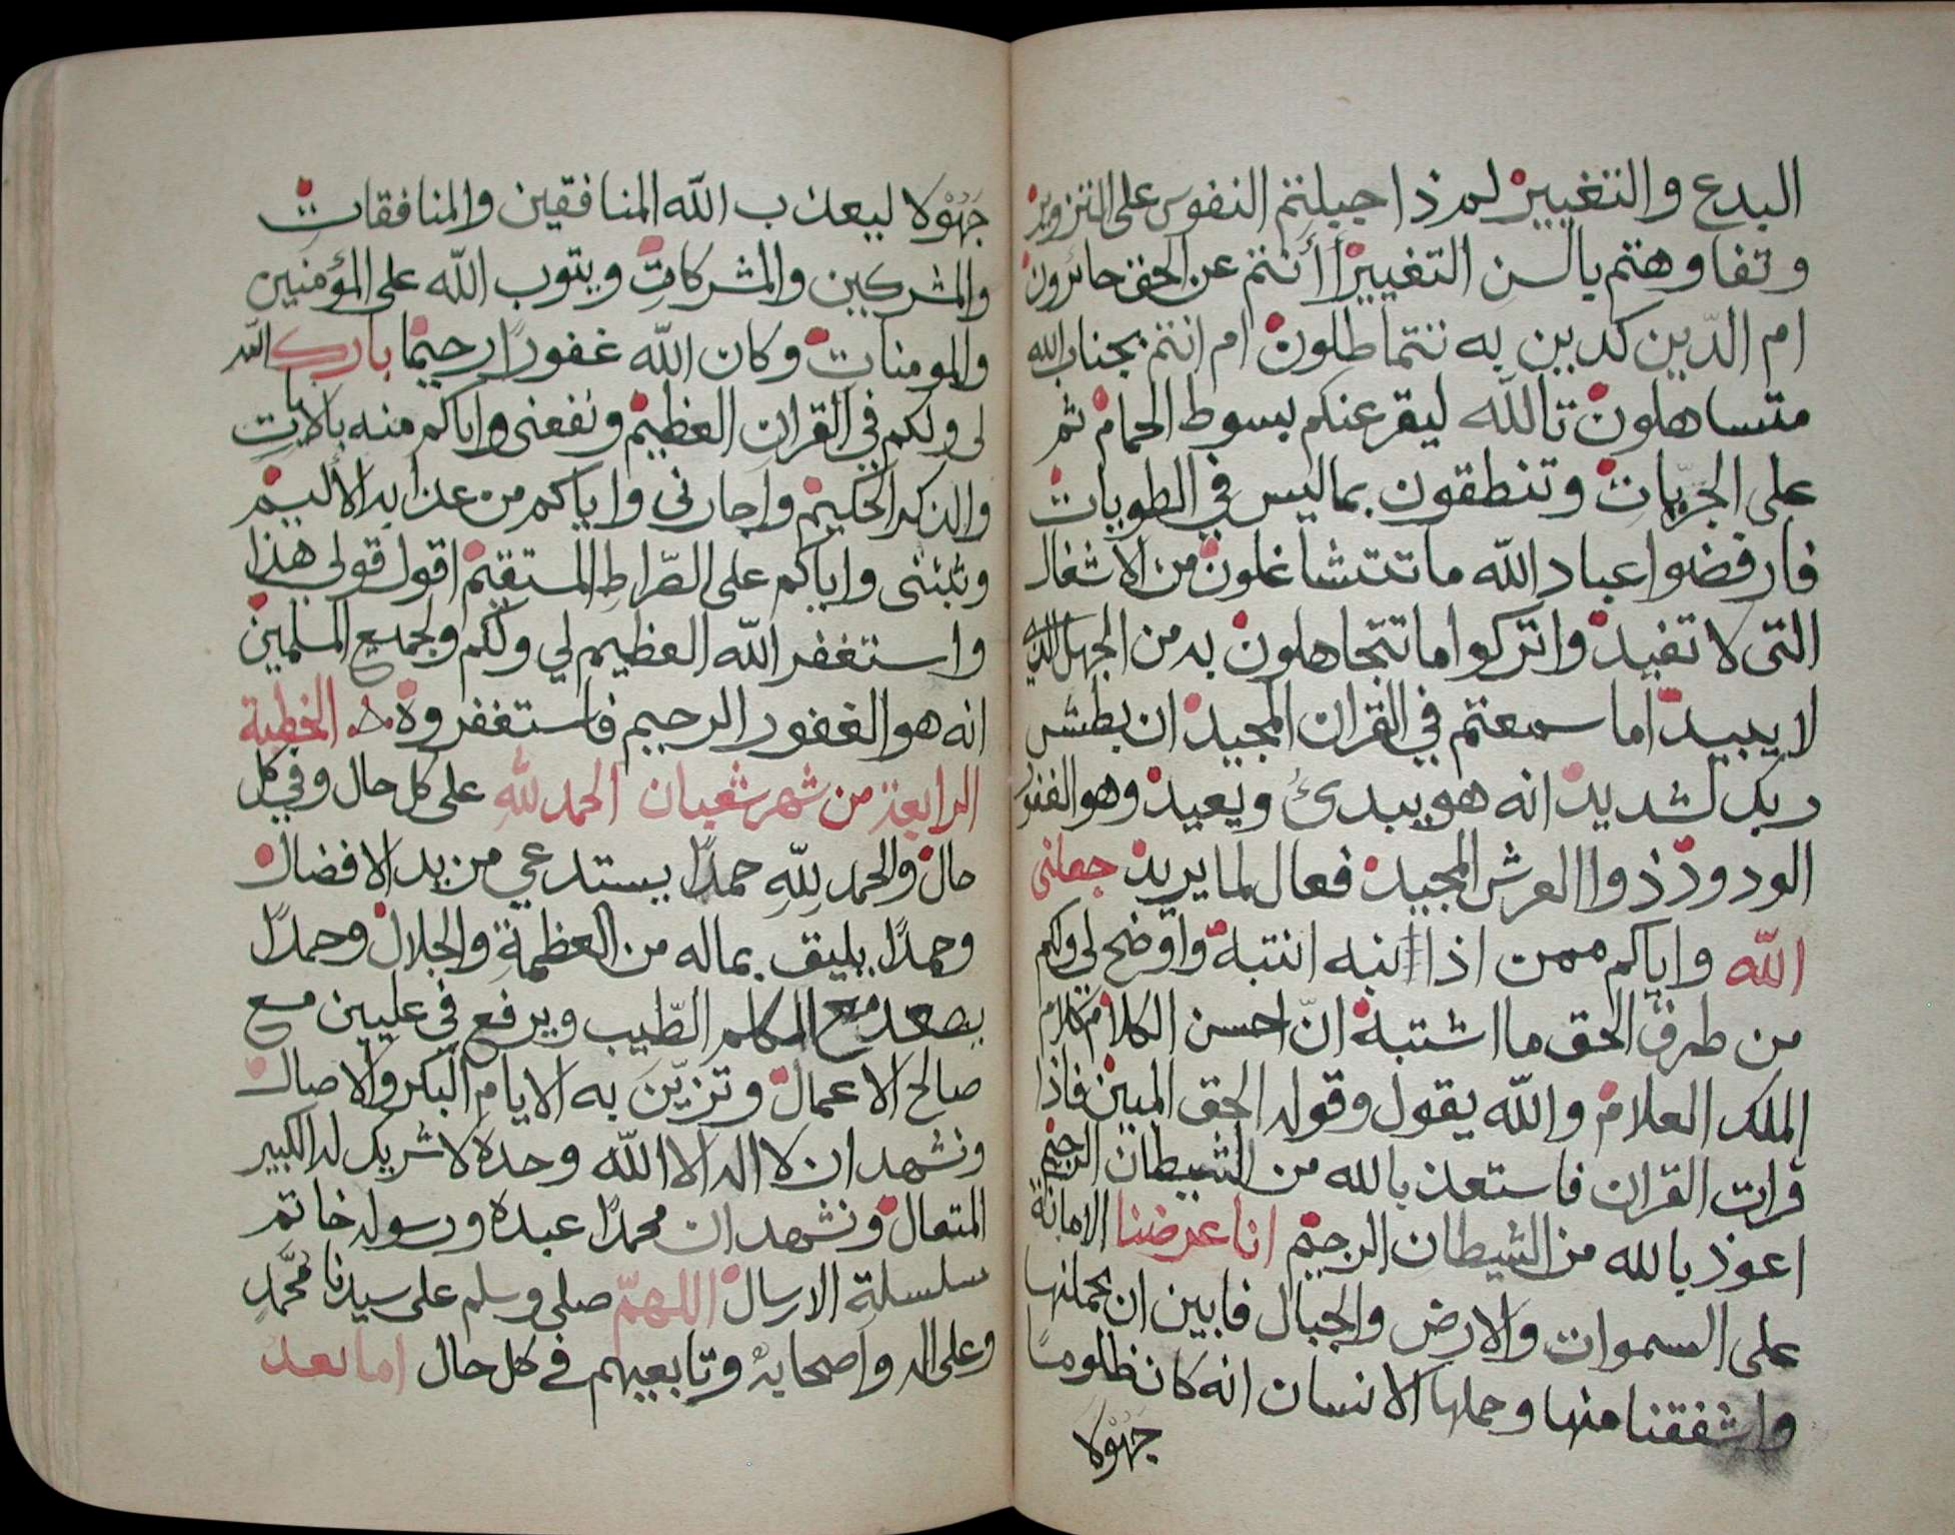 البدع والتغيير لم ذا جبلتم النفوس على التزوير
وتفاوهتم بالسن التغيير أأنتم عن الحق حائرون
ام الدّين كدين به تتماطلون ام انتم بجناب الله
متساهلون تالله ليقرعنكم بسوط الحمام ثم
على الجرّيات وتنطقون بماليس في الطويات
فارفضوا عباد الله ما تتشاغلون من الاشغال
التى لا تفيد واتركوا ما تتجاهلون به من الجهل الذي
لا يبيد اما سمعتم في القران المجيد ان بطش
ربك لشديد انه هو يبدئ ويعيد وهو الغفور
الودود ذوا العرش المجيد فعال لما يريد جعلنى
الله واياكم ممن اذا انبه انتبه واوضح لي ولكم
من طرق الحق ما اشتبه انّ احسن الكلام كلام
الملك العلام والله يقول وقوله الحق المبين فاذا
قرات القران فاستعذ بالله من الشيطان الرجيم
اعوذ بالله من الشيطان الرجيم انا عرضنا الامانة
على السموات والارض والجبال فابين ان يحملنها
واشفقنا منها وحملها الانسان انه كان ظلوما
جَهُوْلا
جَهُوْلا ليعذب الله المنافقين والمنافقات
والمشركين والمشركات ويتوب الله على المؤمنين
والمومنات وكان الله غفورًا رحيما بارك الله
لى ولكم في القران العظيم ونفعنى واياكم منه بالايات
والذكر الحكيم واجارنى واياكم من عذابه الأليم
وثبتنى واياكم على الصّراط المستقيم اقول قولى هذا
واستغفر الله العظيم لي ولكم ولجميع المسلمين
انه هو الغفور الرحيم فاستغفروه الخطبة
الرابعة من شهر شعبان الحمد لله على كل حال وفي كل
حال والحمد لِلّهِ حمدًا يستدعي مزيد الافضال
وحمدًا يليق بماله من العظمة والجلال وحمدًا
يصعد مع الكلم الطّيب ويرفع في عليين مع
صالح الاعمال وتزيّن به الايام البكر والاصال
ونشهد ان لا اله الا الله وحده لا شريك له الكبير
المتعال ونشهد ان محمدًا عبده ورسوله خاتم
سلسلة الارسال اللهمّ صلى وسلم على سيدنا محمّدٍ
وعلى اله واصحابه وتابعيهم في كل حال اما بعد